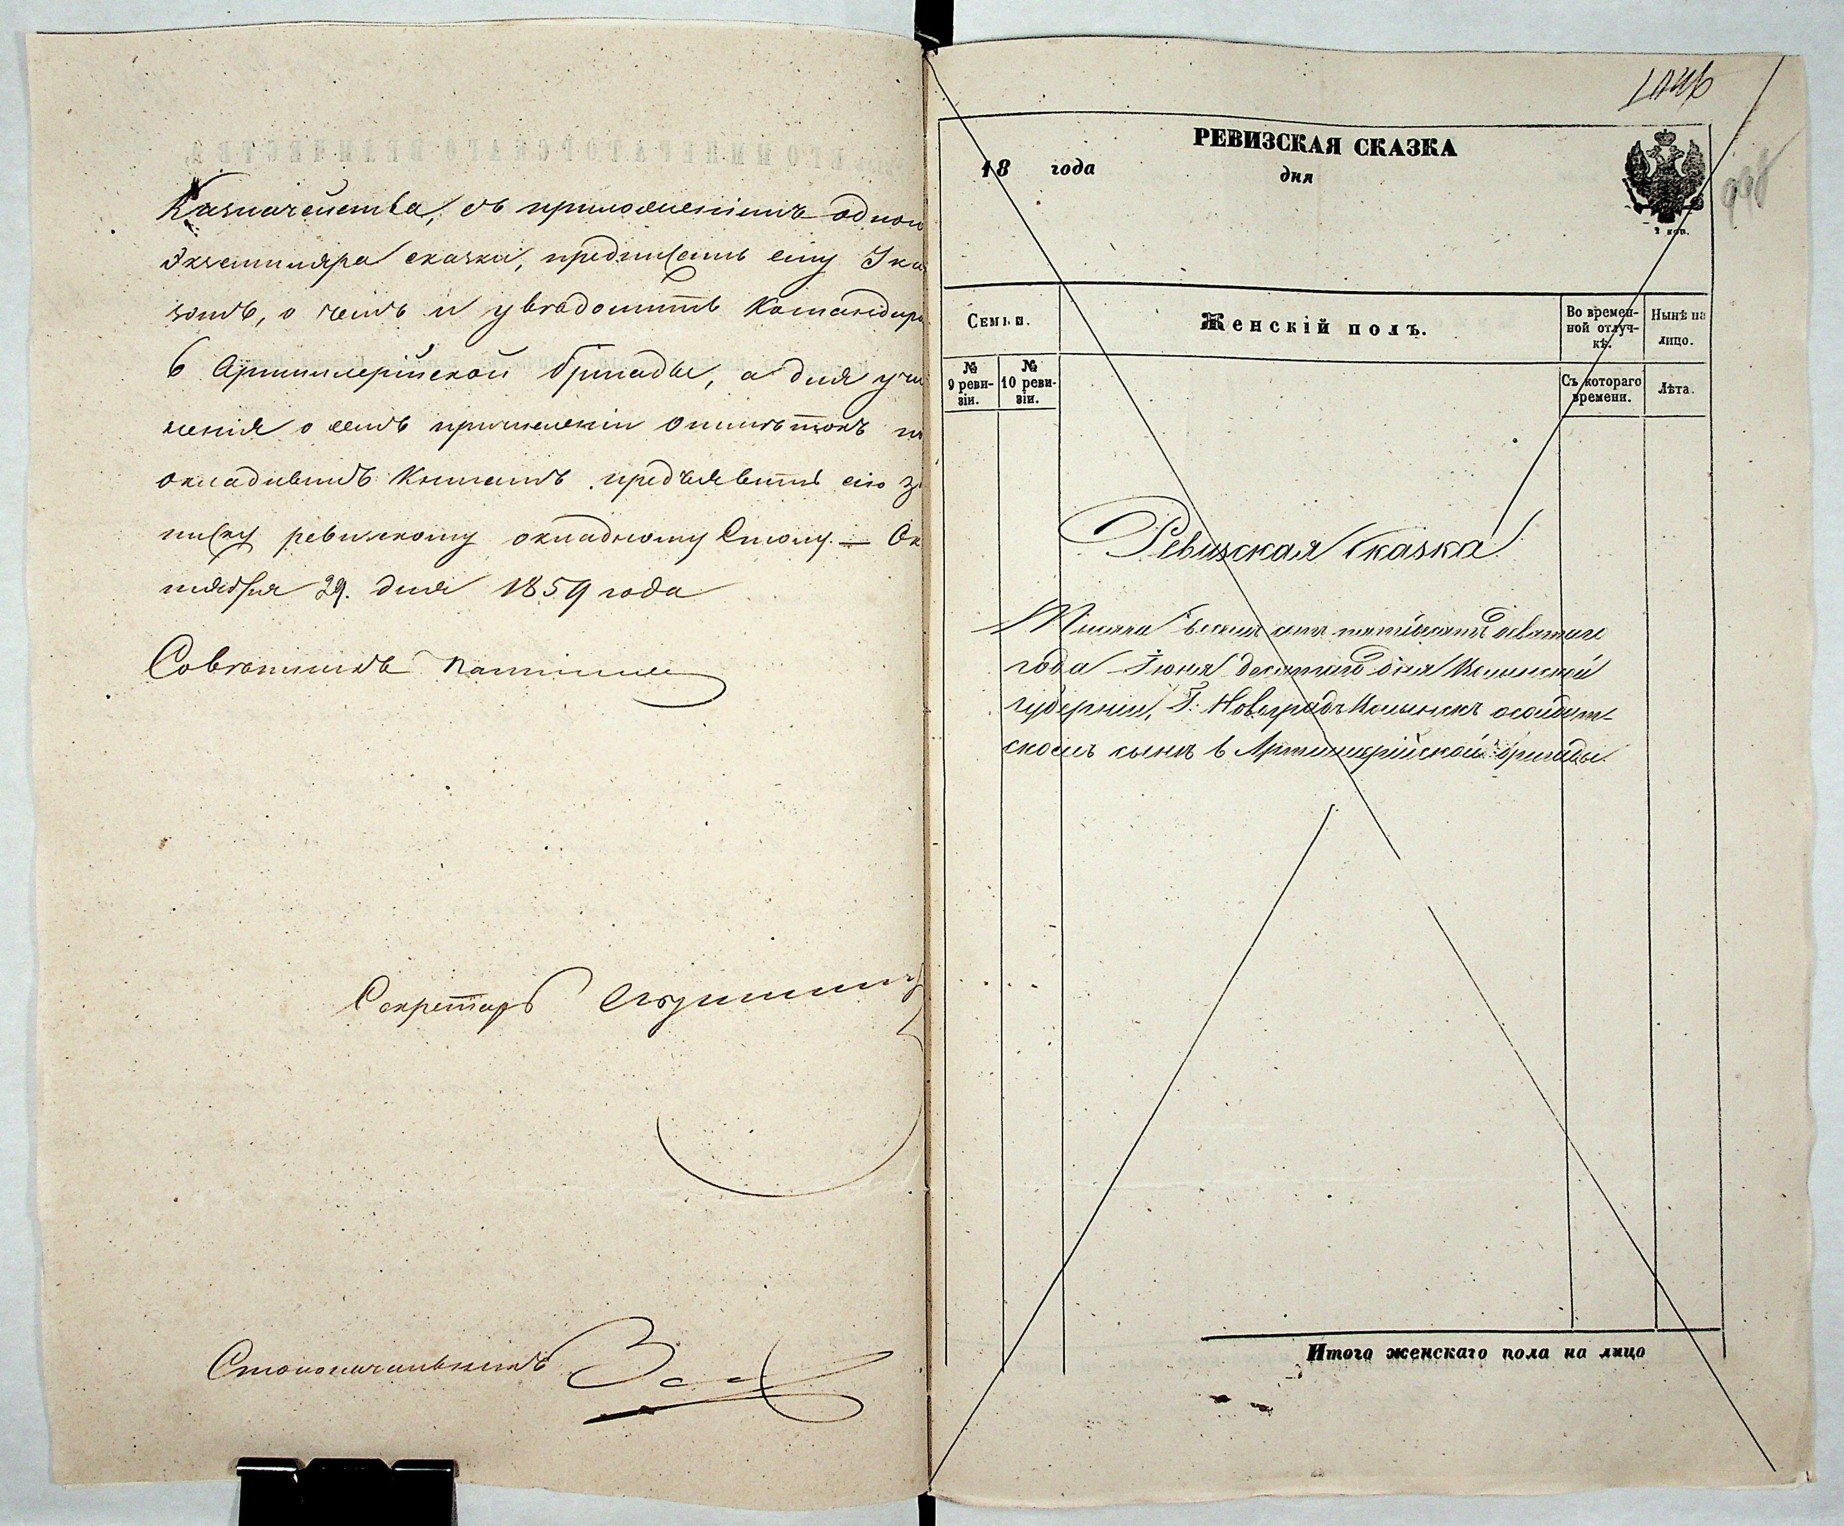 Казначейства, съ приложеніемъ одного
Экземпляра сказки, предписать ему Ука
зомъ, о чемъ и увѣдомить Командира
6 Артиллерійской бригады, а для учи
ненія о семъ причисленіи отмѣтокъ по
окладнымъ Книгамъ предъявить сію за
писку ревизскому окладному Столу. — Ок
тября 29. дня 1859 года
Совѣтникъ
Секретарь
Столоначальникъ
РЕВИЗСКАЯ СКАЗКА
18 года дня
2 коп.
Семьи.
Женскій полъ.
Во времен-
ной отлуч-
кѣ.
Нынѣ на
лицо.
№
9 реви-
зіи.
№
10 реви-
зіи.
Съ котораго
времени.
Лѣта.
Ревизская Сказка
Тысяча восемь сотъ пятьдесятъ девятаго
года Іюня десятаго дня Волынской
губерніи, Г. Новоградъ Волынскъ о солдат-
скомъ сынѣ 6 Артиллерійской бригады.
Итого женскаго пола на лицо